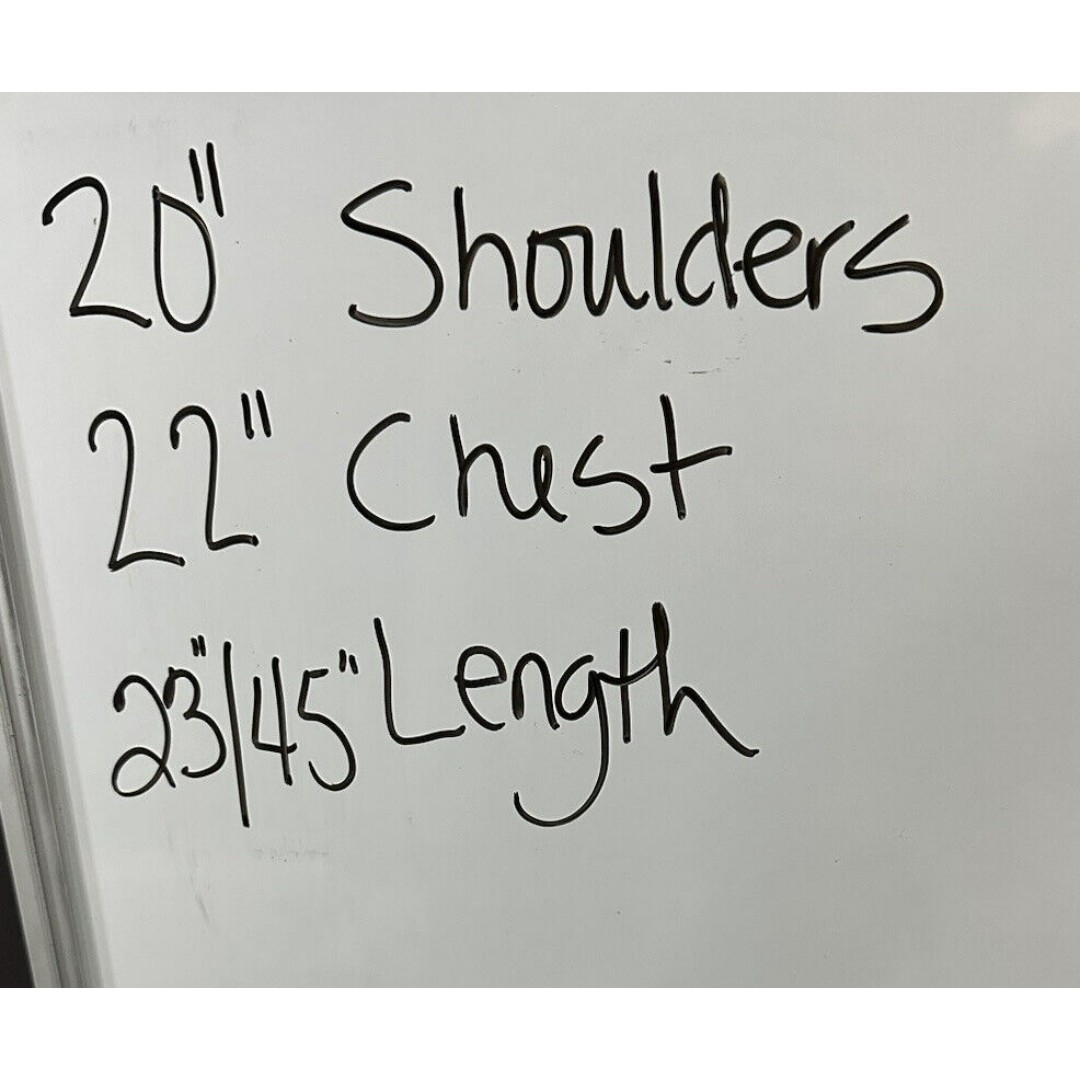 20" Shoulders
22" Chest
23"/45" Length